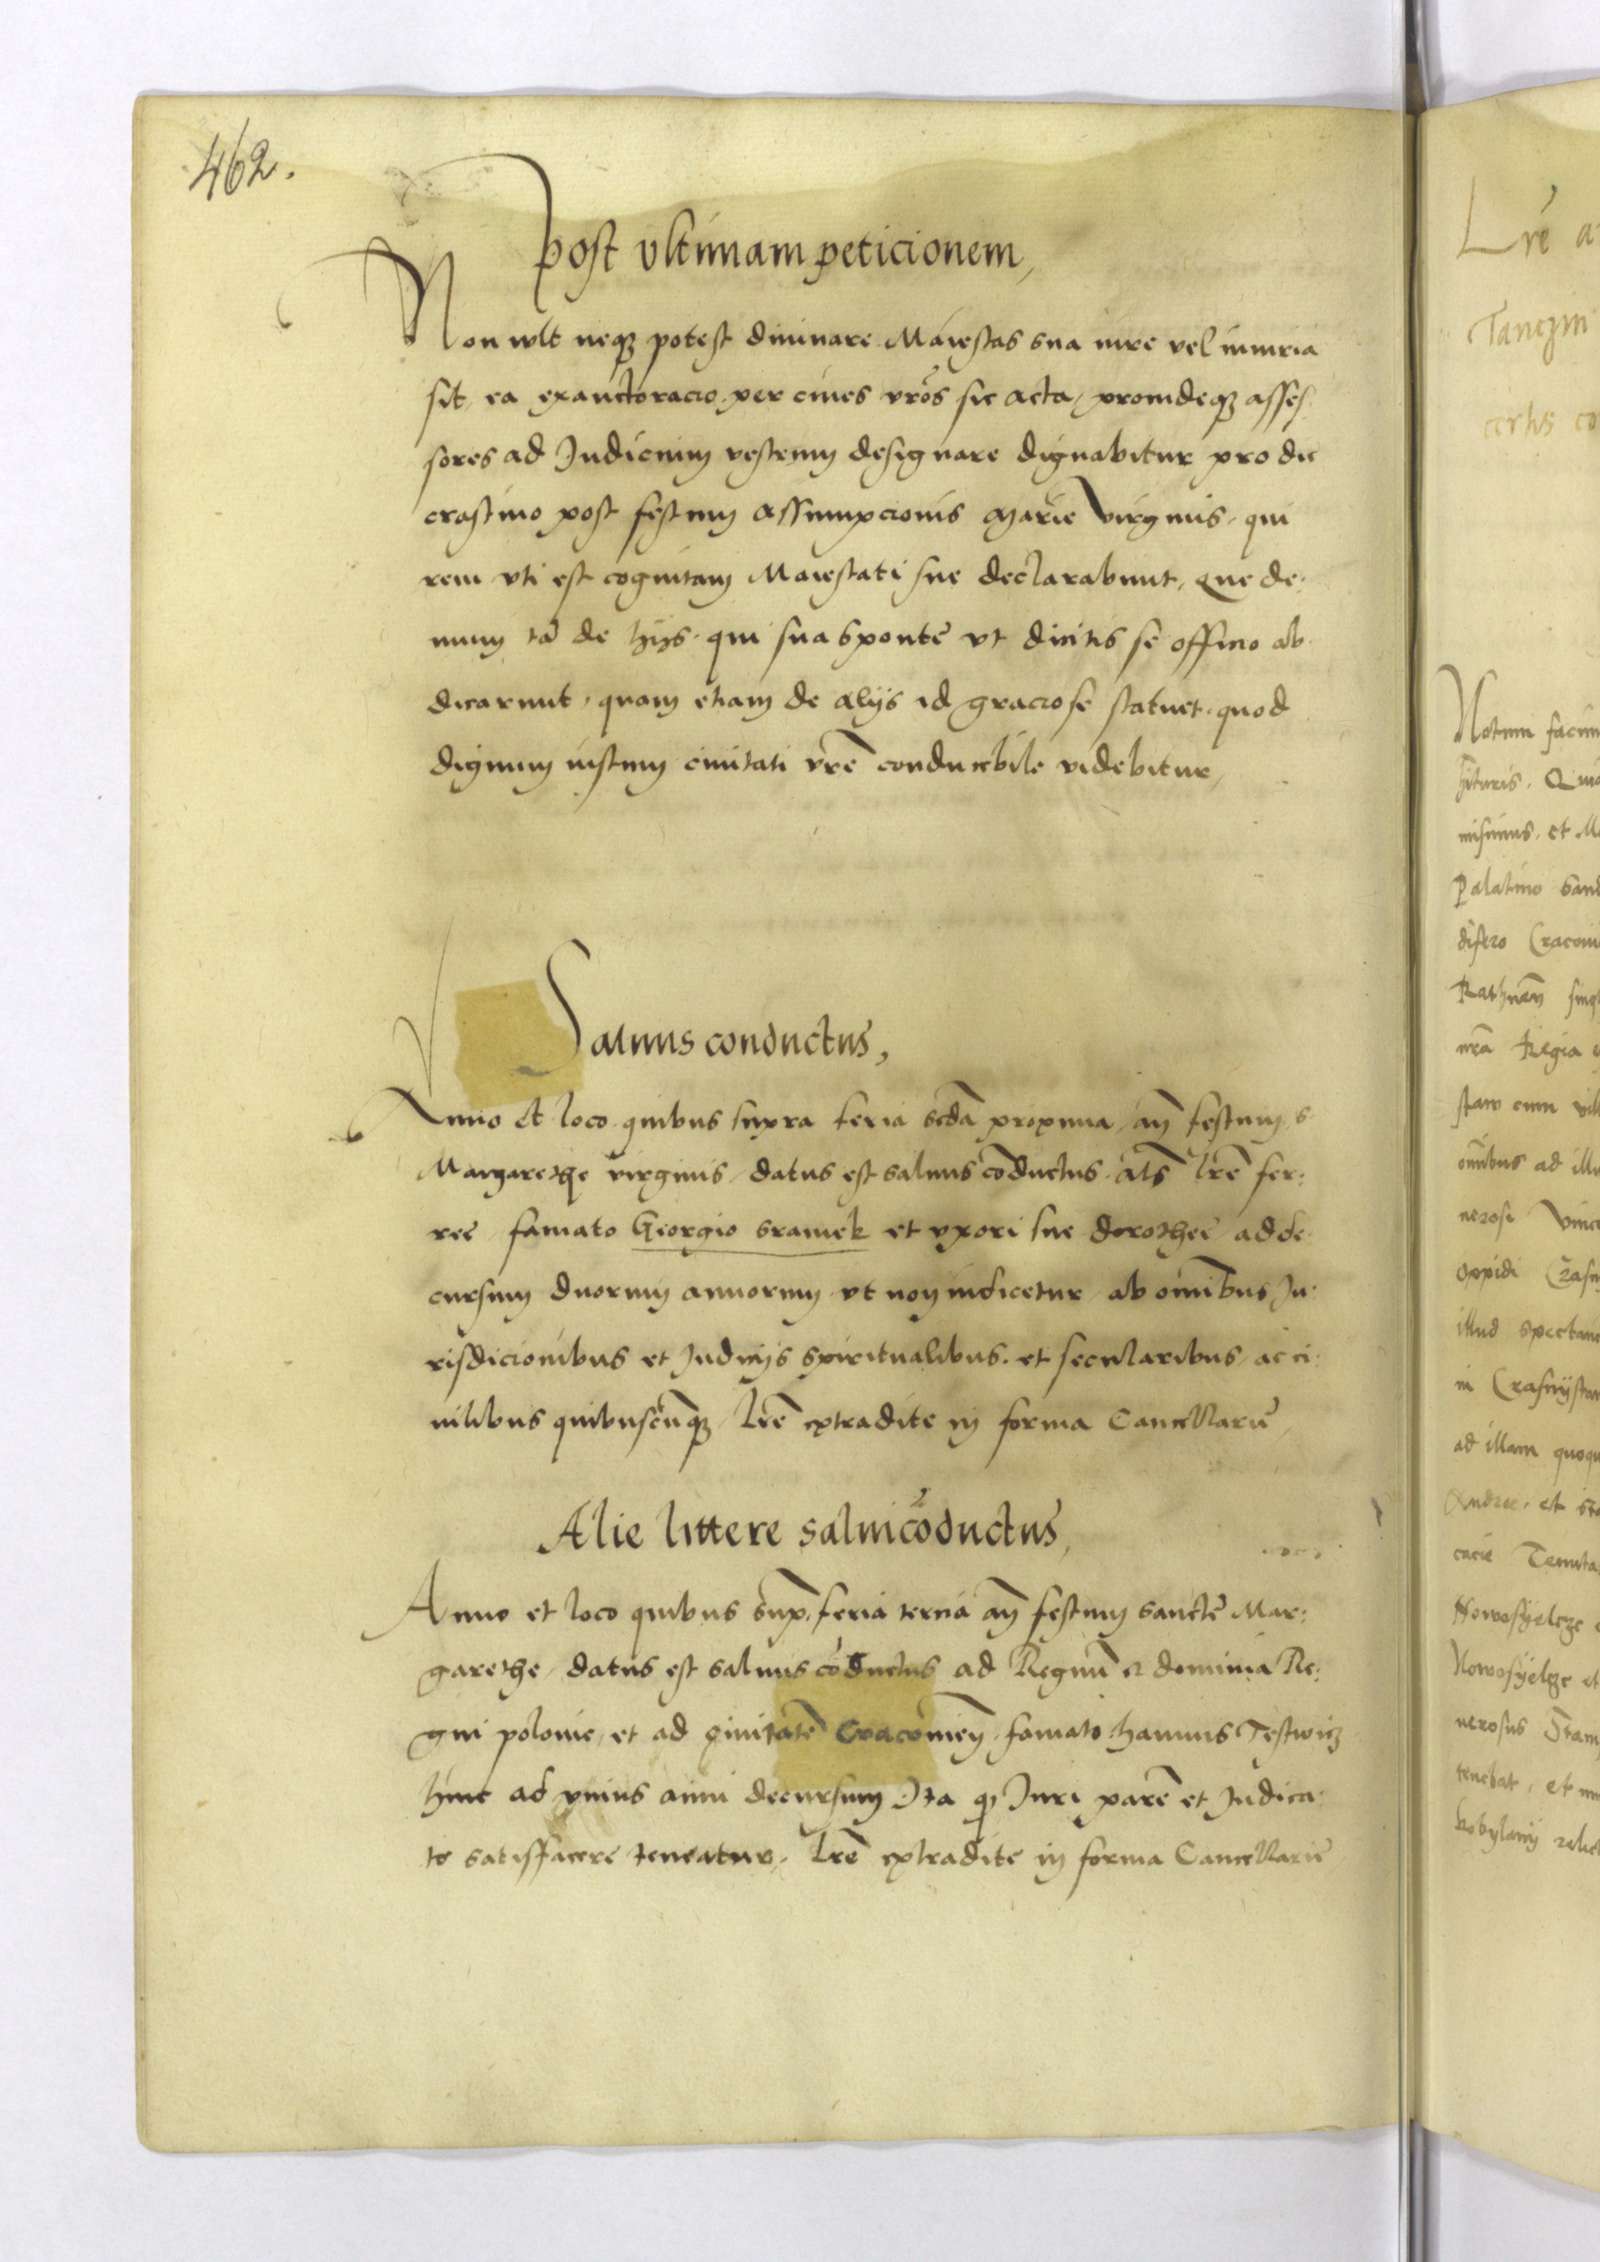 462.
Post vltimam peticionem,
Non vult neq3 potest diuinare Maiestas sua iure vel iniuria
sit, ea exauctoracio per ciues vros sic acta, proindeq3 asses/
sores ad Judicium vestrum designare dignabitur pro die
crastino post festum Assumpcionis Marie Virginis, qui
rem vti est cognitam Maiestati sue declarabunt, Que de:
mum ta de hijs qui sua sponte vt dicitis se officio ab
dicarunt, quam etiam de alijs id graciose statuet, quod
dignum iustum ciuitati vre conducibile videbitur,
Saluus conductus,
Anno et loco quibus supra feria scda proxima an festum s
Margarethe virginis, datus est saluus coductus als lre fer:
ree famato Georgio sramek et vxori sue dorothee, ad de:
cursum duorum annorum vt non iudicetur ab omibus Ju:
risdicionibus et Judicijs spiritualibus et secularibus, ac ci:
uilibus quibuscuq3, lre extradite in forma Cancellarie
Alie littere saluicoductus,
Anno et loco quibus sup. feria tercia an festum sancte Mar:
garethe, datus est saluus coductus ad Regnu et dominia Re:
gni polonie, et ad ciuitate Cracouien, famato hannus Testwicz
hinc ad vnius anni decursum Ita q Juri pare et Judica:
to satisfacere teneatur, lre extradite in forma Cancellarie
Lre a
Tanczin
certis co
Notum facim
bituris. Qui
misimus, et M
Palatino San
disero Cracoui
nra Regia
staw cum vill
omibus ad ill
nerosi Vinc
oppidi Crasn
illud spectan
in Crasnysta
ad illam quoq
Andree, et st
cacie Tenuta
Nowosyelcze
Nowosyelcze et
nerosus Stan
tenebat, et
kobylany relic